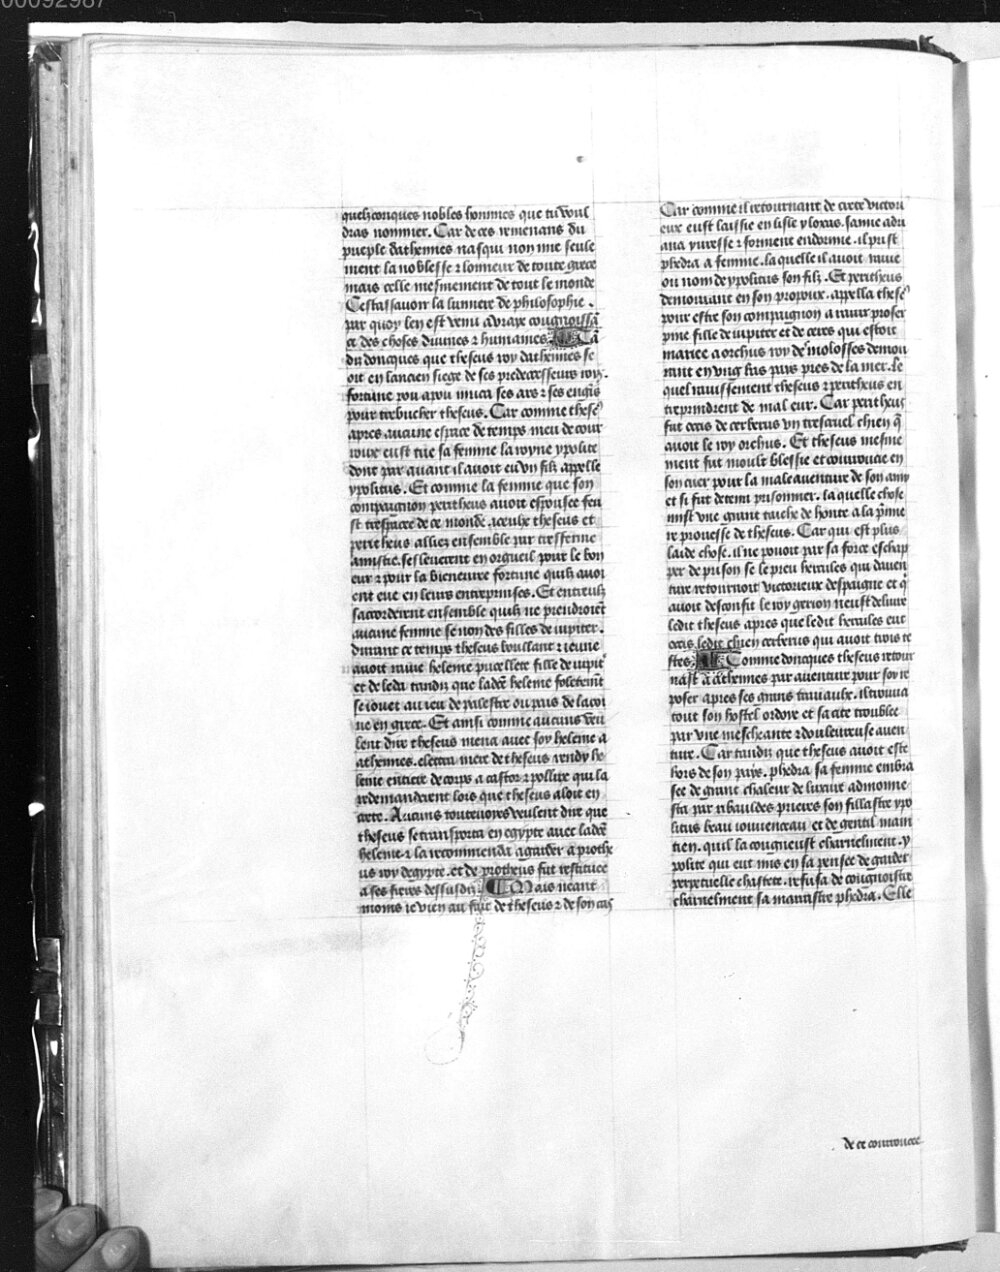 00092987
quelzconques nobles hommes que tu voul
dras nommer. Car de ces remenans du
pueple dathennes nasqui non mie seule
ment la noblesse ⁊ lonneur de toute grece
mais celle mesmement de tout le monde
Cestassauoir la lumiere de philosophie.
par quoy len est venu a vraye cougnoissã
ce des choses diuines ⁊ humaines. Cã
du doncques que theseus roy dathennes se
oit en lancien siege de ses predecesseurs roys.
fortune pou apou mua ses ars ⁊ ses engis
pour trebucher theseus. Car comme these9
apres aucune espace de temps meu de cour
roux eust tue sa femme la royne ypolite
dont par auant il auoit eu vn filz appelle
ypolitus. Et comme la femme que son
compaignon peritheus auoit espousee feu
st trespacee de ce monde. iceulx theseus et
peritheus alliez ensemble par tresferme
amistie. se esleuerent en orgueil pour le bon
eur ⁊ pour la bieneuree fortune quilz auoi
ent eue en leurs entreprinses. Et entreulz
sacorderent ensemble quilz ne prendroiẽt
aucune femme se non des filles de iupiter.
durant ce temps theseus boullant ⁊ ieune
auoit rauie heleine pucellete fille de iupit
et de leda tandis que ladce heleine foletemẽt
se iouet au ieu de palestre ou pais de lacoi
ne en grece. Et ainsi comme aucuns veu
lent dire theseus mena auec soy heleine a
athennes. electra mere de theseus rendy he
leine entiere de corps a castor ⁊ pollux qui la
redemanderent lors que theseus aloit en
crete. Aucuns toutesuoies veulent dire que
theseus se transporta en egypte auec ladce
heleine ⁊ la recommenda a garder a prothe
us roy degypte. et de protheus fut restituee
a ses freres dessusdis. Mais neant
moins ie vien au fait de theseus ⁊ de son cas
Car comme il retournant de crete victori
eux eust laissie en lisle yloxas. famie adri
ana yuresse ⁊ forment endormie. il prist
phedra a femme. la quelle il auoit rauie
ou nom de ypolitus son filz. Et peritheus
demourant en son propoux. appella these9
pour estre son compaignon a rauir proser
pine fille de iupiter et de ceres qui estoit
mariee a orchus roy de molosses demou
rant en vng sus pays pres de la mer. le
quel rauissement theseus ⁊ peritheus en
treprindrent de mal eur. Car peritheus
fut occis de cerberus vn trescruel chien q̃
auoit le roy orchus. Et theseus mesme
ment fut moult blessie et courroucie en
son cuer pour la male auenture de son amy
et si fut detenu prisonnier. la quelle chose
mist vne grant tache de honte a la p̃mie
re prouesse de theseus. Car qui est plus
laide chose. il ne pouoit par sa force eschap
per de prison se le preu hercules qui dauen
ture retournoit victorieux despaigne et q̃
auoit desconfit le roy gerion neust deliure
ledit theseus apres que ledit hercules eut
occis ledit chien cerberus qui auoit trois te
stes. Comme doncques theseus retour
nast a athennes par auenture pour soy re
poser apres ses grans trauaulx. il trouua
tout son hostel ordoye et sa cite troublee
par vne mescheante ⁊ douleureuse auen
ture. Car tandis que theseus auoit este
hors de son pays. phedra sa femme embra
see de grant chaleur de luxure admonne
sta par ribauldes prieres son fillastre ypo
litus beau iouuenceau et de gentil main
tien. quil la cougneust charnelment. y
polite qui eut mis en sa pensee de garder
perpetuelle chastete. refusa de cougnoistre
charnelment sa marrastre phedra. Elle
de ce courroucee